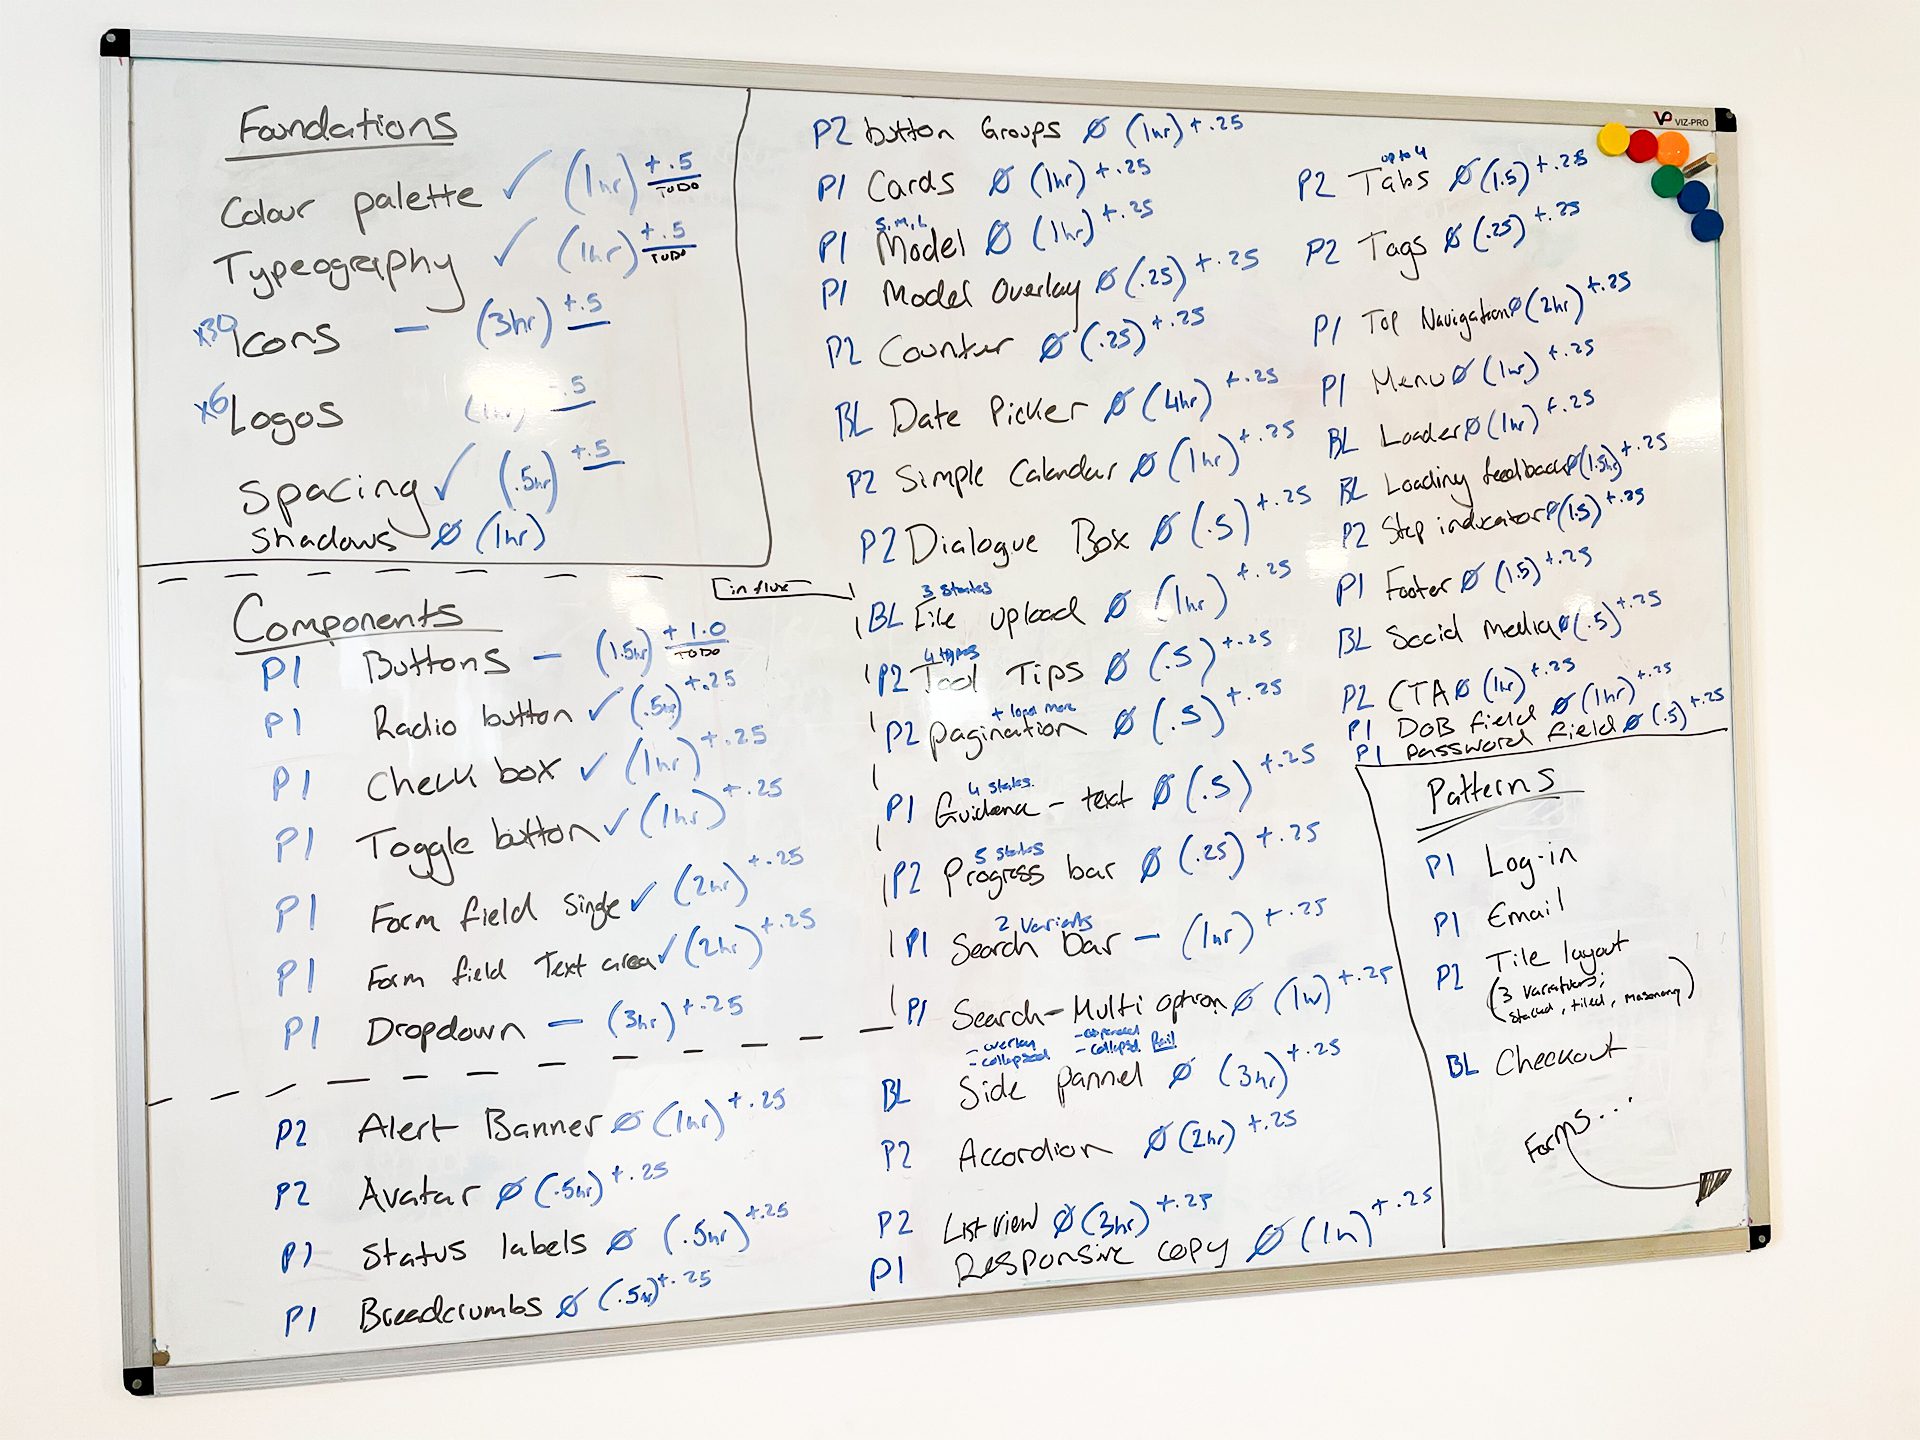 Foundations
Colour palette ✓ (1hr) +.5 TODO
Typeography ✓ (1hr) +.5 TODO
x30 Icons – (3hr) +.5
x6 Logos (1hr) +.5
Spacing ✓ (.5hr) +.5
Shadows Ø (1hr)
in flux
Components
P1 Buttons – (1.5hr) +1.0 TODO
P1 Radio button ✓ (.5hr) +.25
P1 Check box ✓ (1hr) +.25
P1 Toggle button ✓ (1hr) +.25
P1 Form field Single ✓ (2hr) +.25
P1 Form field Text area ✓ (2hr) +.25
P1 Dropdown – (3hr) +.25
P2 Alert Banner Ø (1hr) +.25
P2 Avatar Ø (.5hr) +.25
P1 Status labels Ø (.5hr) +.25
P1 Breadcrumbs Ø (.5hr) +.25
P2 button Groups Ø (1hr) +.25
P1 Cards Ø (1hr) +.25
S, M, L
P1 Model Ø (1hr) +.25
P1 Model Overlay Ø (.25) +.25
P2 Counter Ø (.25) +.25
BL Date Picker Ø (4hr) +.25
P2 Simple Calendar Ø (1hr) +.25
P2 Dialogue Box Ø (.5) +.25
3 states
BL File upload Ø (1hr) +.25
4 types
P2 Tool Tips Ø (.5) +.25
+ load more
P2 Pagination Ø (.5) +.25
4 states
P1 Guidence - text Ø (.5) +.25
5 states
P2 Progress bar Ø (.25) +.25
2 variants
P1 Search bar – (1hr) +.25
P1 Search - Multi option Ø (1hr) +.25
- overlay - expanded
- collapsed - collapsed Rail
BL Side pannel Ø (3hr) +.25
P2 Accordion Ø (2hr) +.25
P2 List view Ø (3hr) +.25
P1 Responsive copy Ø (1hr) +.25
VIZ-PRO
up to 4
P2 Tabs Ø (1.5) +.25
P2 Tags Ø (.25) +.25
P1 Top Navigation Ø (2hr) +.25
P1 Menu Ø (1hr) +.25
BL Loader Ø (1hr) +.25
BL Loading feedback Ø (1.5hr) +.25
P2 Step indicator Ø (1.5) +.25
P1 Footer Ø (1.5) +.25
BL Social Media Ø (.5) +.25
P2 CTA Ø (1hr) +.25
P1 DoB field Ø (1hr) +.25
P1 Password field Ø (.5) +.25
Patterns
P1 Log-in
P1 Email
P2 Tile layout
(3 variations;
stacked, tiled, masonary)
BL Checkout
Forms...